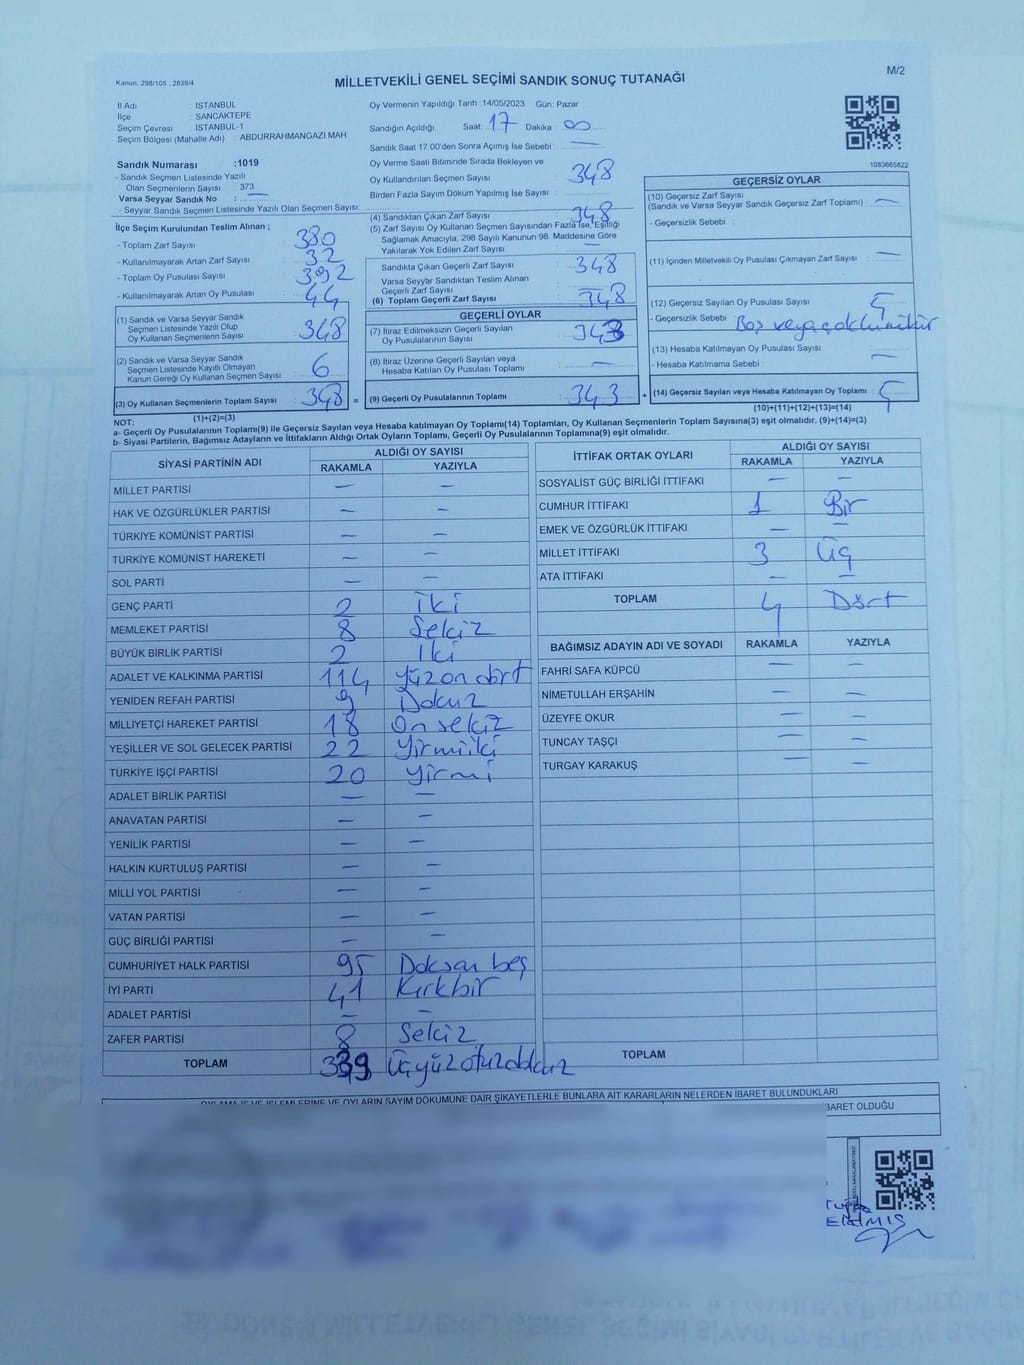 M/2
Kanun. 298/105 , 2839/4
MİLLETVEKİLİ GENEL SEÇİMİ SANDIK SONUÇ TUTANAĞI
İl Adı : İSTANBUL
İlçe : SANCAKTEPE
Seçim Çevresi : İSTANBUL-1
Seçim Bölgesi (Mahalle Adı) : ABDURRAHMANGAZİ MAH
Sandık Numarası :1019
- Sandık Seçmen Listesinde Yazılı
Olan Seçmenlerin Sayısı : 373
Varsa Seyyar Sandık No : —
- Seyyar Sandık Seçmen Listesinde Yazılı Olan Seçmen Sayısı:
İlçe Seçim Kurulundan Teslim Alınan ;
- Toplam Zarf Sayısı : 380
- Kullanılmayarak Artan Zarf Sayısı : 32
- Toplam Oy Pusulası Sayısı : 392
- Kullanılmayarak Artan Oy Pusulası : 44
(1) Sandık ve Varsa Seyyar Sandık
Seçmen Listesinde Yazılı Olup
Oy Kullanan Seçmenlerin Sayısı : 348
(2) Sandık ve Varsa Seyyar Sandık
Seçmen Listesinde Kayıtlı Olmayan
Kanun Gereği Oy Kullanan Seçmen Sayısı : 6
(3) Oy Kullanan Seçmenlerin Toplam Sayısı : 348 =
(1)+(2)=(3)
Oy Vermenin Yapıldığı Tarih :14/05/2023 Gün: Pazar
Sandığın Açıldığı Saat : 17 Dakika : 00
Sandık Saat 17:00'den Sonra Açımış İse Sebebi : —
Oy Verme Saati Bitiminde Sırada Bekleyen ve
Oy Kullandırılan Seçmen Sayısı : 348
Birden Fazla Sayım Döküm Yapılmış İse Sayısı :
(4) Sandıktan Çıkan Zarf Sayısı : 348
(5) Zarf Sayısı Oy Kullanan Seçmen Sayısından Fazla İse, Eşitliği
Sağlamak Amacıyla, 298 Sayılı Kanunun 98. Maddesine Göre
Yakılarak Yok Edilen Zarf Sayısı : —
Sandıkta Çıkan Geçerli Zarf Sayısı : 348
Varsa Seyyar Sandıktan Teslim Alınan
Geçerli Zarf Sayısı : —
(6) Toplam Geçerli Zarf Sayısı : 348
GEÇERLİ OYLAR
(7) İtiraz Edilmeksizin Geçerli Sayılan
Oy Pusulalarının Sayısı : 343
(8) İtiraz Üzerine Geçerli Sayılan veya
Hesaba Katılan Oy Pusulası Toplamı : —
(9) Geçerli Oy Pusulalarının Toplamı : 343 +
1083665822
GEÇERSİZ OYLAR
(10) Geçersiz Zarf Sayısı
(Sandık ve Varsa Seyyar Sandık Geçersiz Zarf Toplamı) : —
- Geçersizlik Sebebi :
(11) İçinden Milletvekili Oy Pusulası Çıkmayan Zarf Sayısı : —
(12) Geçersiz Sayılan Oy Pusulası Sayısı : 5
- Geçersizlik Sebebi : Boş veya çoklu mühür
(13) Hesaba Katılmayan Oy Pusulası Sayısı : —
- Hesaba Katılmama Sebebi :
(14) Geçersiz Sayılan veya Hesaba Katılmayan Oy Toplamı : 5
(10)+(11)+(12)+(13)=(14)
NOT:
a- Geçerli Oy Pusulalarının Toplamı(9) ile Geçersiz Sayılan veya Hesaba katılmayan Oy Toplamı(14) Toplamları, Oy Kullanan Seçmenlerin Toplam Sayısına(3) eşit olmalıdır. (9)+(14)=(3)
b- Siyasi Partilerin, Bağımsız Adayların ve İttifakların Aldığı Ortak Oyların Toplamı, Geçerli Oy Pusulalarının Toplamına(9) eşit olmalıdır.
SİYASİ PARTİNİN ADI ALDIĞI OY SAYISI
RAKAMLA YAZIYLA
MİLLET PARTİSİ — —
HAK VE ÖZGÜRLÜKLER PARTİSİ — —
TÜRKİYE KOMÜNİST PARTİSİ — —
TÜRKİYE KOMÜNİST HAREKETİ — —
SOL PARTİ — —
GENÇ PARTİ 2 iki
MEMLEKET PARTİSİ 8 Sekiz
BÜYÜK BİRLİK PARTİSİ 2 İki
ADALET VE KALKINMA PARTİSİ 114 yüz on dört
YENİDEN REFAH PARTİSİ 9 Dokuz
MİLLİYETÇİ HAREKET PARTİSİ 18 On sekiz
YEŞİLLER VE SOL GELECEK PARTİSİ 22 Yirmiiki
TÜRKİYE İŞÇİ PARTİSİ 20 yirmi
ADALET BİRLİK PARTİSİ — —
ANAVATAN PARTİSİ — —
YENİLİK PARTİSİ — —
HALKIN KURTULUŞ PARTİSİ — —
MİLLİ YOL PARTİSİ — —
VATAN PARTİSİ — —
GÜÇ BİRLİĞİ PARTİSİ — —
CUMHURİYET HALK PARTİSİ 95 Doksan beş
İYİ PARTİ 41 Kırkbir
ADALET PARTİSİ — —
ZAFER PARTİSİ 8 Sekiz
TOPLAM 339 Üçyüz otuz dokuz
İTTİFAK ORTAK OYLARI ALDIĞI OY SAYISI
RAKAMLA YAZIYLA
SOSYALİST GÜÇ BİRLİĞİ İTTİFAKI — —
CUMHUR İTTİFAKI 1 Bir
EMEK VE ÖZGÜRLÜK İTTİFAKI — —
MİLLET İTTİFAKI 3 Üç
ATA İTTİFAKI — —
TOPLAM 4 Dört
BAĞIMSIZ ADAYIN ADI VE SOYADI RAKAMLA YAZIYLA
FAHRİ SAFA KÜPCÜ — —
NİMETULLAH ERŞAHİN — —
ÜZEYFE OKUR — —
TUNCAY TAŞÇI — —
TURGAY KARAKUŞ — —
TOPLAM
OYLAMA İŞ VE İŞLEMLERİNE VE OYLARIN SAYIM DÖKÜMÜNE DAİR ŞİKAYETLERLE BUNLARA AİT KARARLARIN NELERDEN İBARET BULUNDUKLARI
BARET OLDUĞU